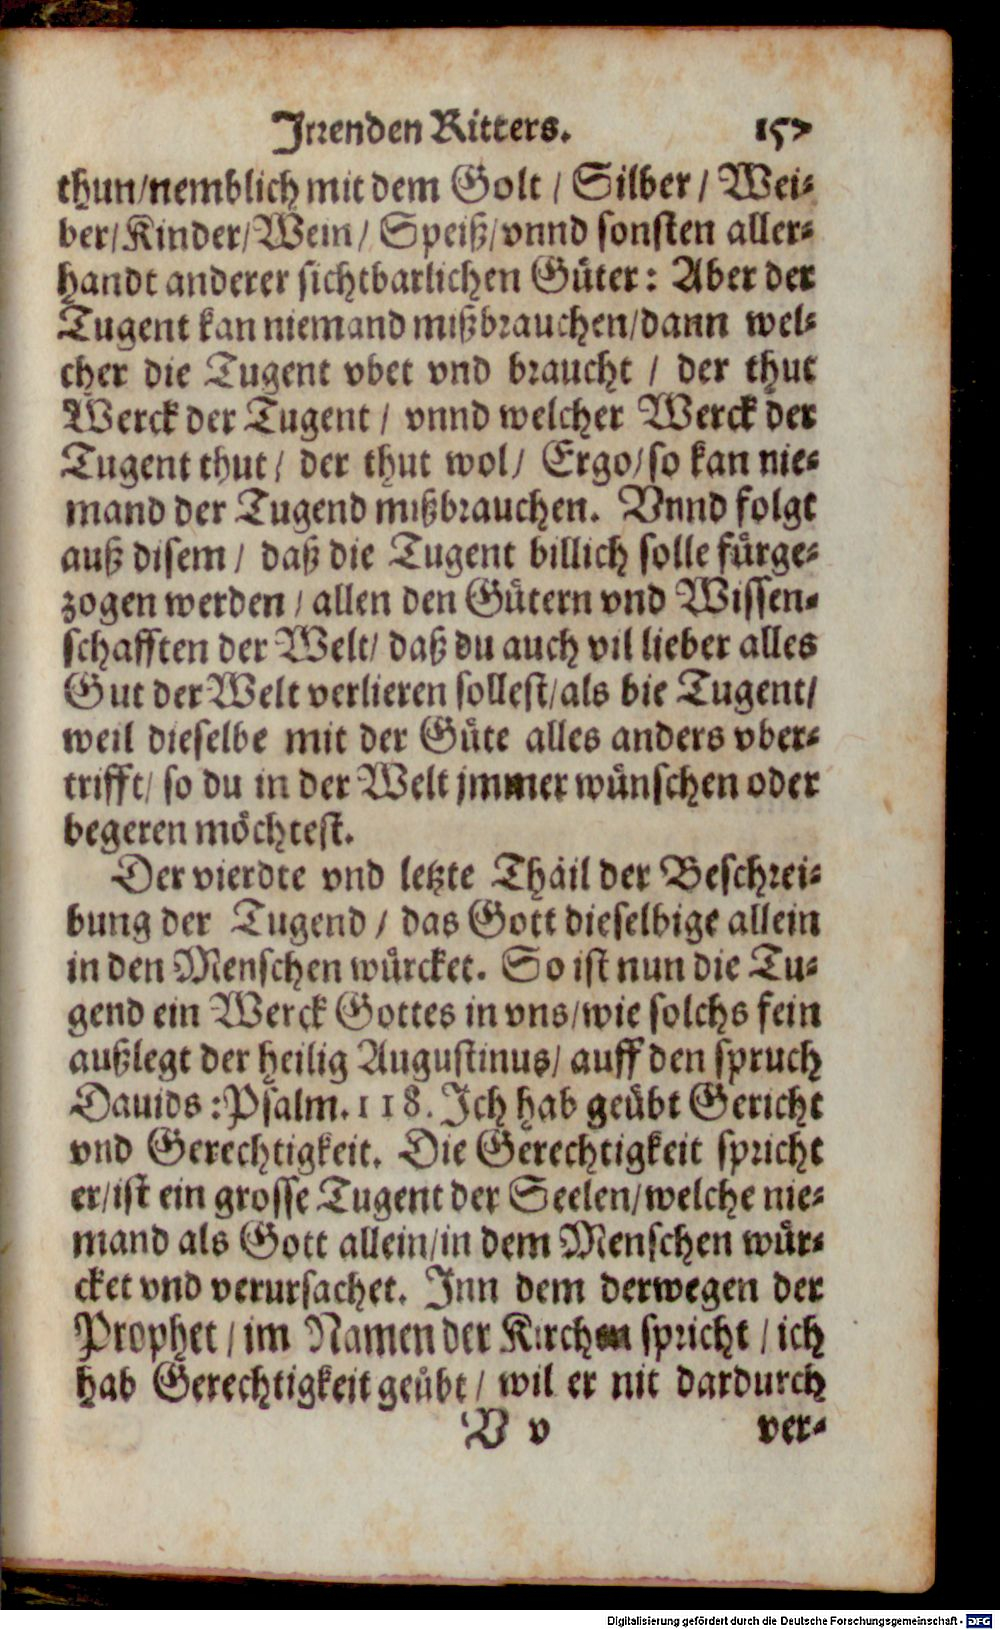 Irrenden Ritters. 157
thun/nemblich mit dem Golt / Silber / Wei-
ber/Kinder/Wein/ Speiß/vnnd sonsten aller-
handt anderer sichtbarlichen Güter: Aber der
Tugent kan niemand mißbrauchen/dann wel-
cher die Tugent vbet vnd braucht / der thut
Werck der Tugent / vnnd welcher Werck der
Tugent thut/ der thut wol/ Ergo/so kan nie-
mand der Tugend mißbrauchen. Vnnd folgt
auß disem / daß die Tugent billich solle fürge-
zogen werden / allen den Gütern vnd Wissen-
schafften der Welt/ daß du auch vil lieber alles
Gut der Welt verlieren sollest/als die Tugent/
weil dieselbe mit der Güte alles anders vber-
trifft/ so du in der Welt jmmer wünschen oder
begeren möchtest.
Der vierdte vnd letzte Thäil der Beschrei-
bung der Tugend / das Gott dieselbige allein
in den Menschen würcket. So ist nun die Tu-
gend ein Werck Gottes in vns/wie solchs fein
außlegt der heilig Augustinus/ auff den spruch
Dauids : Psalm. 118. Ich hab geübt Gericht
vnd Gerechtigkeit. Die Gerechtigkeit spricht
er/ist ein grosse Tugent der Seelen/welche nie-
mand als Gott allein/in dem Menschen wür-
cket vnd verursachet. Inn dem derwegen der
Prophet / im Namen der Kirchen spricht / ich
hab Gerechtigkeit geübt / wil er nit dardurch
V v ver-
Digitalisierung gefördert durch die Deutsche Forschungsgemeinschaft - DFG